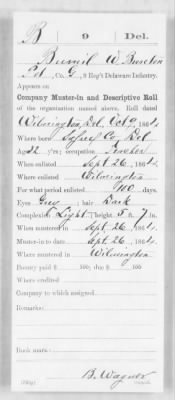 B 9 Del.
W. Burton
Pvt., Co. G, 9 Reg't Delaware Infantry.
Appears on
Company Muster-in and Descriptive Roll
of the organization named above. Roll dated
Wilmington, Del. Oct 9, 1864.
Where born Co. Del.
Age 22 y'rs; occupation
When enlisted Sept. 26, 1864.
Where enlisted Wilmington
For what period enlisted 100 days.
Eyes Grey; hair Dark
Complexion Light; height 5 ft. 7 in.
When mustered in Sept. 26, 1864.
Muster-in to date Sept. 26, 1864.
Where mustered in Wilmington
Bounty paid $ 100; due $ 100
Where credited
Company to which assigned
Remarks:
Book mark:
B. Wagner